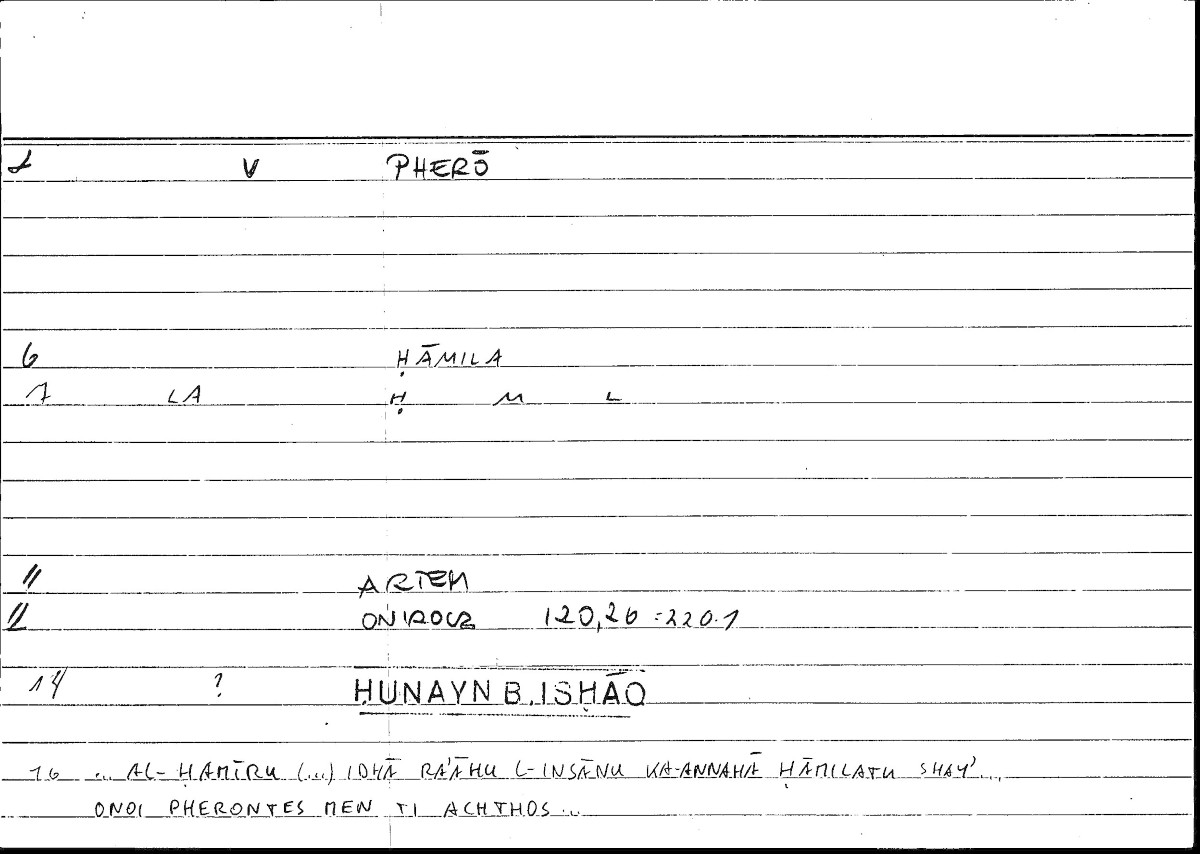 2 V PHERŌ
6 ḤĀMILA
7 LA Ḥ M L
11 ARTEM
12 ONIROCR 120,26 = 220.1
14 ? ḤUNAYN B. ISḤĀQ
16 ... AL-ḤAMĪRU (...) IDHĀ RA'ĀHU L-INSĀNU KA-ANNAHĀ ḤĀMILATU SHAY'...
ONOI PHERONTES MEN TI ACHTHOS...